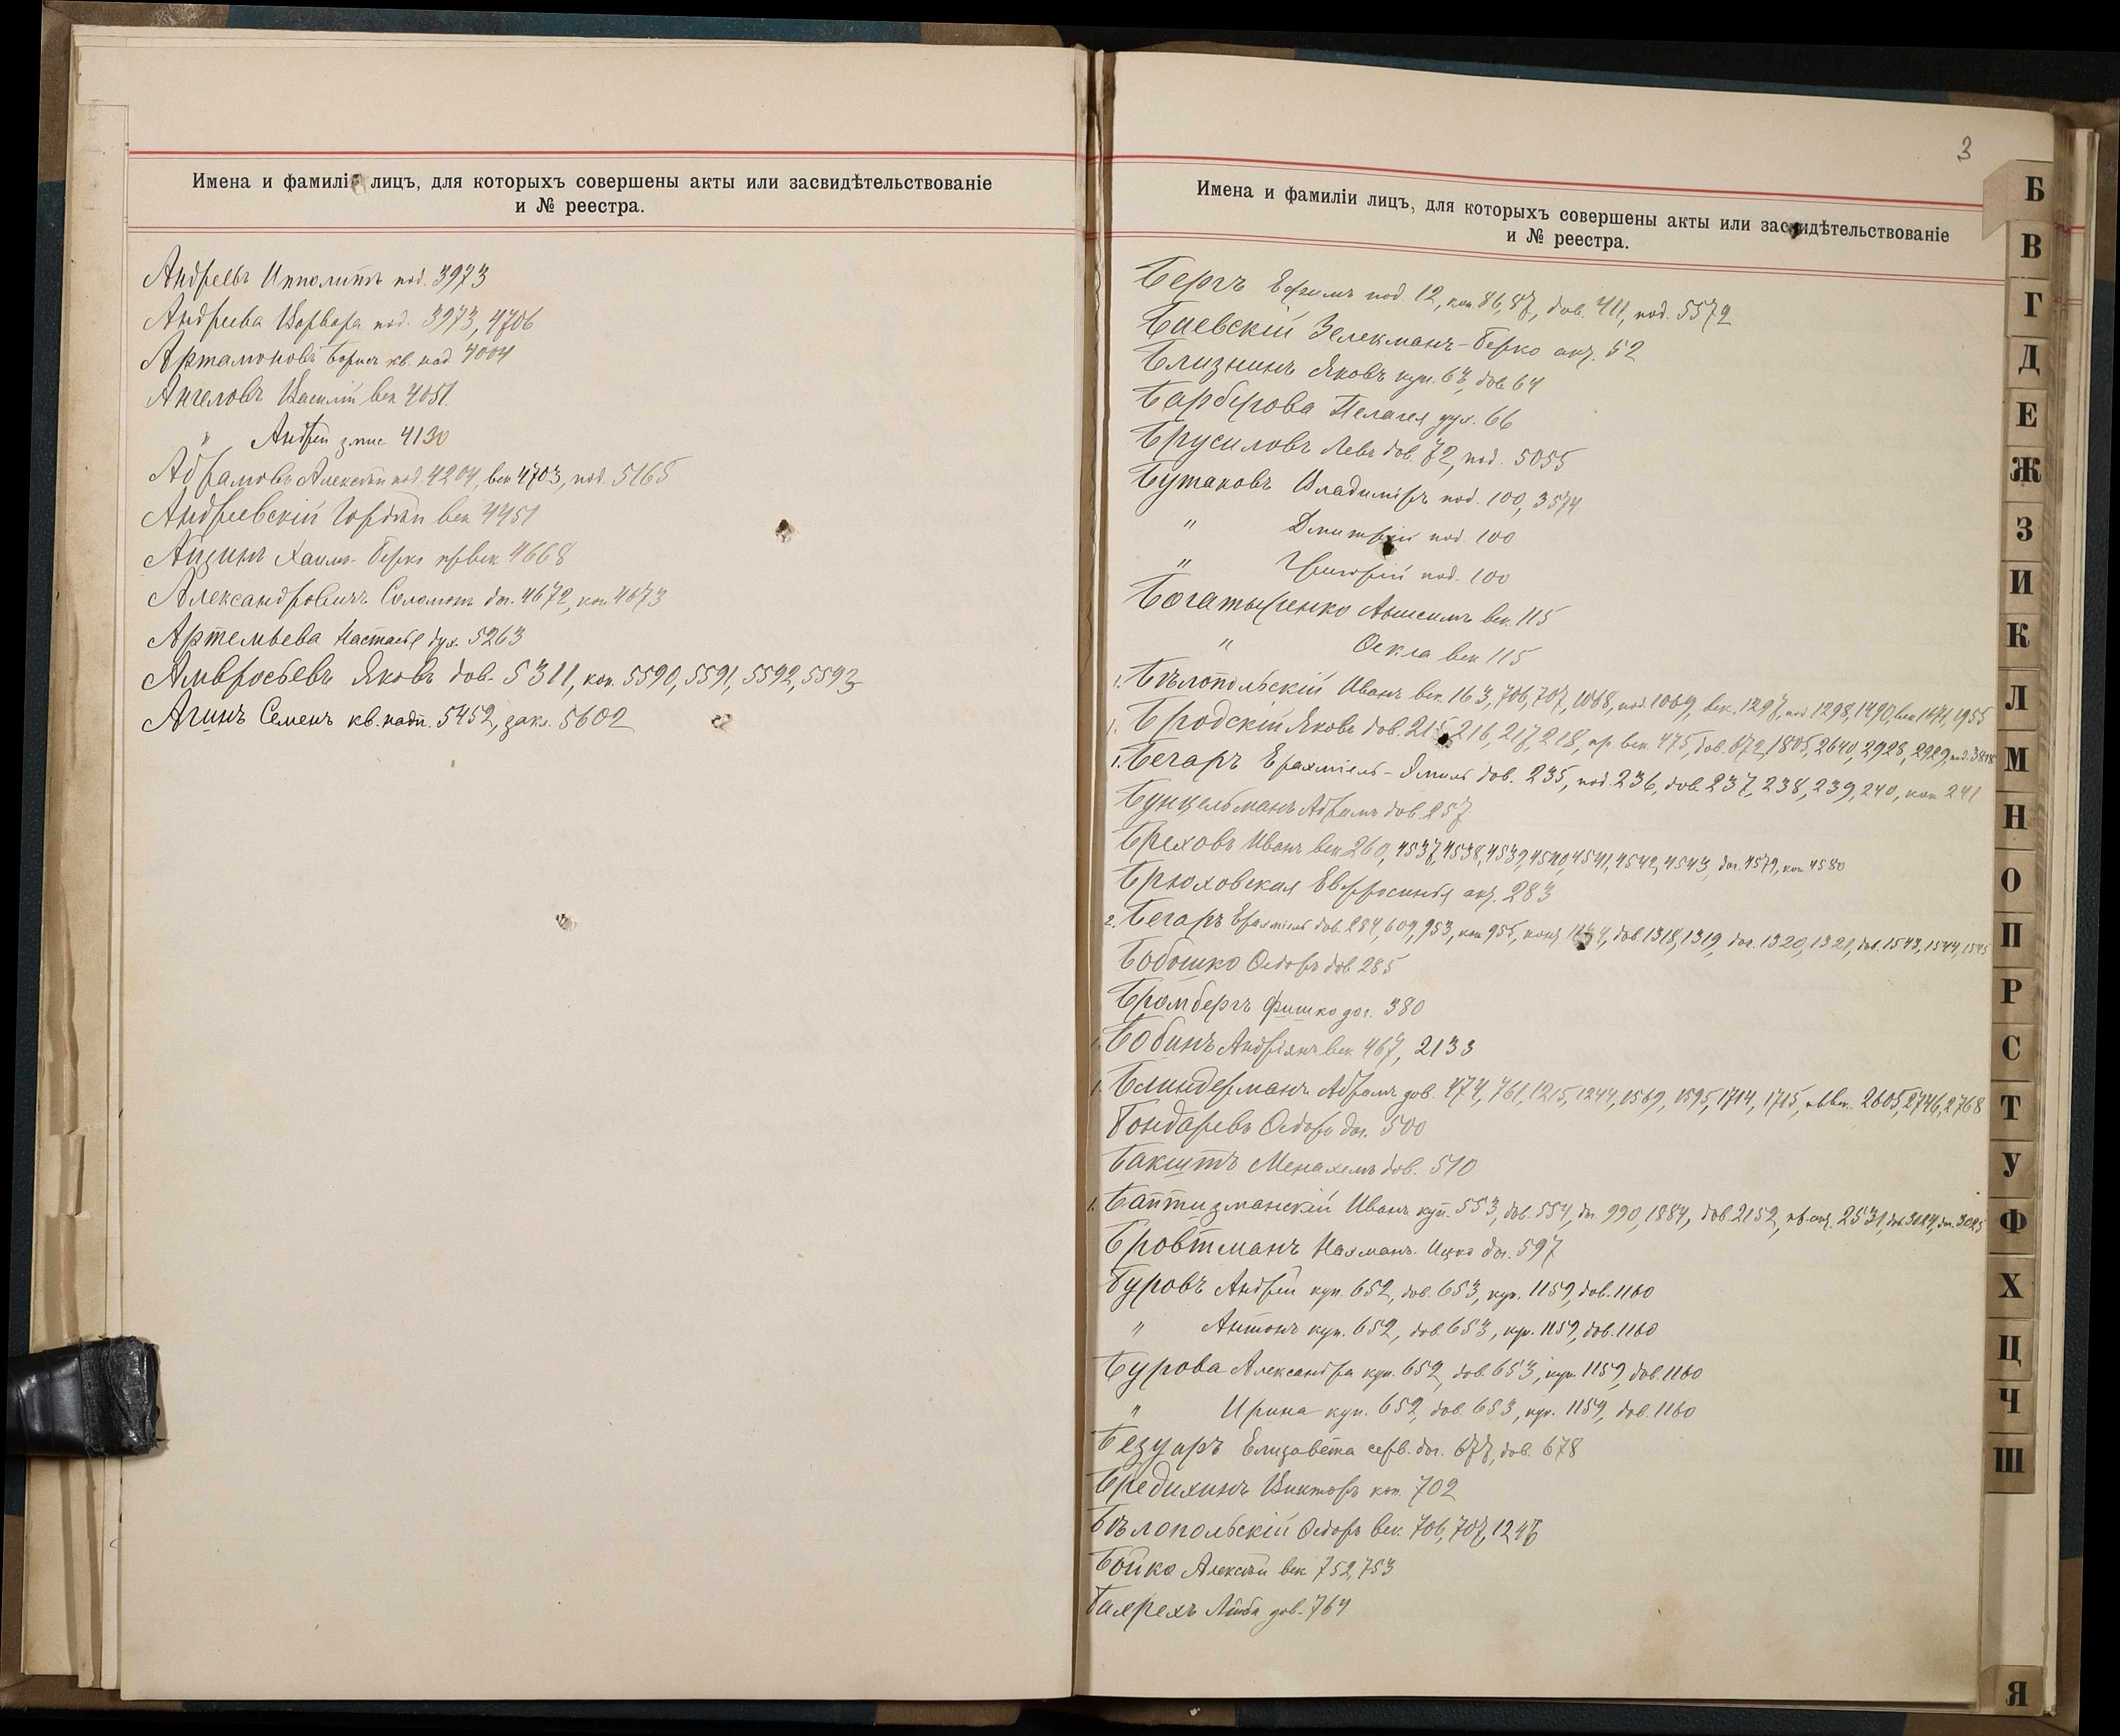 Имена и фамиліи лицъ, для которыхъ совершены акты или засвидѣтельствованіе
и № реестра.
Андреевъ Ипполитъ под. 3973
Андреева Варвара под. 3973, 4706
Артамоновъ Борисъ кв. над 4004
Ангеловъ Василій век 4051
" Андрей 4130
Абрамовъ Алексѣй под. 4204, век 4703, под. 5165
Андреевскій Гордѣй век 4451
Айзинъ Хаимъ-Берко 4668
Александровичъ Соломонъ дог. 4672, коп. 4673
Артемьева Настасья дух. 5263
Амвросьевъ Яковъ дов. 5311, коп. 5590, 5591, 5592, 5593
Агинъ Семенъ кв. надп. 5452, закл. 5602
3
Имена и фамиліи лицъ, для которыхъ совершены акты или засвидѣтельствованіе
и № реестра.
Бергъ Ефимъ под. 12, коп. 86, 87, дов. 411, под. 5572
Баевскій Зелекманъ-Берко 52
Близнинъ Яковъ куп. 63, дов. 64
Барберова Пелагея дух. 66
Брусиловъ Левъ дов. 72, под. 5055
Бутаковъ Владиміръ под. 100, 3574
" Дмитрій под. 100
" Григорій под. 100
Богатыренко Анисимъ век. 115
" Фекла век 115
1. Бѣлопольскій Иванъ век 163, 706, 707, 1068, под. 1069, век. 1297, под 1298, 1490, век 1671, 1955
1. Бродскій Яковъ дов. 215, 216, 217, 218, пр. век. 475, дов. 672, 1805, 2640, 2928, 2929, под. 3818
1. Бегаръ Ерахміель-Эмиль дов. 235, под. 236, дов. 237, 238, 239, 240, коп 241
Бунцельманъ Абрамъ дов. 257
Бреховъ Иванъ век 260, 4537, 4538, 4539, 4540, 4541, 4542, 4543, дог. 4579, коп 4580
Брюховская Евфросинья 283
2. Бегаръ Ерахміель дов. 284, 609, 953, коп 955, дов 1318, 1319, дог. 1320, 1321, дов. 1543, 1544, 1545
Бобошко Федоръ дов 285
Бромбергъ Фишко дог. 380
1. Бобинъ Андріянъ век 467, 2133
1. Блиндерманъ Абрамъ дов. 474, 761, 1215, 1244, 1569, 1595, 1714, 1715, 2605, 2746, 2768
Бондаревъ Федоръ дог. 500
Бакштъ Менахемъ дов. 510
1. Баптизманскій Иванъ куп. 553, дов. 554, дог. 990, 1884, дов. 2152, 2531, дов 3024, дог. 3025
Бровтманъ Нахманъ-Ицко дог. 597
Буровъ Андрей куп. 652, дов. 653, куп. 1159, дов. 1160
" Антонъ куп. 652, дов. 653, куп. 1159, дов. 1160
Бурова Александра куп. 652, дов. 653, куп. 1159, дов. 1160
" Ирина куп. 652, дов. 653, куп. 1159, дов. 1160
Безуаръ Елизавета серв. дог. 677, дов. 678
Бредихинъ Викторъ коп. 702
Бѣлопольскій Федоръ век 706, 707, 1246
Бойко Алексѣй век 752, 753
Лейба дов. 764
Б
В
Г
Д
Е
Ж
З
И
К
Л
М
Н
О
П
Р
С
Т
У
Ф
Х
Ц
Ч
Ш
Я